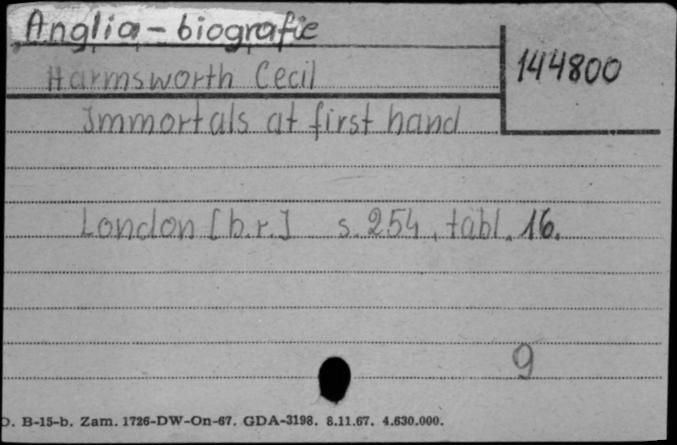 Anglia - biografie
144800
Harmsworth Cecil
Immortals at first hand
London [b.r.] s. 254, tabl. 16.
9
D. B-15-b. Zam. 1726-DW-On-67. GDA-3198. 8.11.67. 4.630.000.